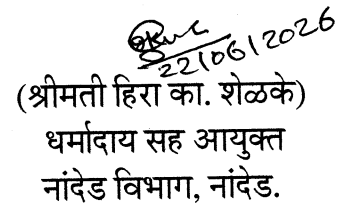 22/06/2026
(श्रीमती हिरा का. शेळके)
धर्मादाय सह आयुक्त
नांदेड विभाग, नांदेड.